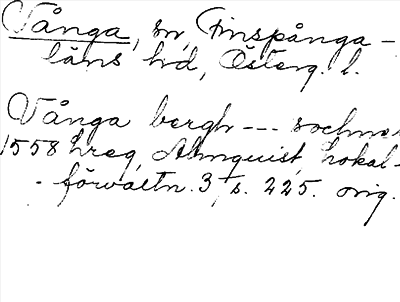 Vånga, sn, Finspånga-
läns hd, Österg. l.
Vånga bergh --- sochnes
1558 hreg, Almquist, Lokal-
- förvaltn. 3, s. 225. orig.